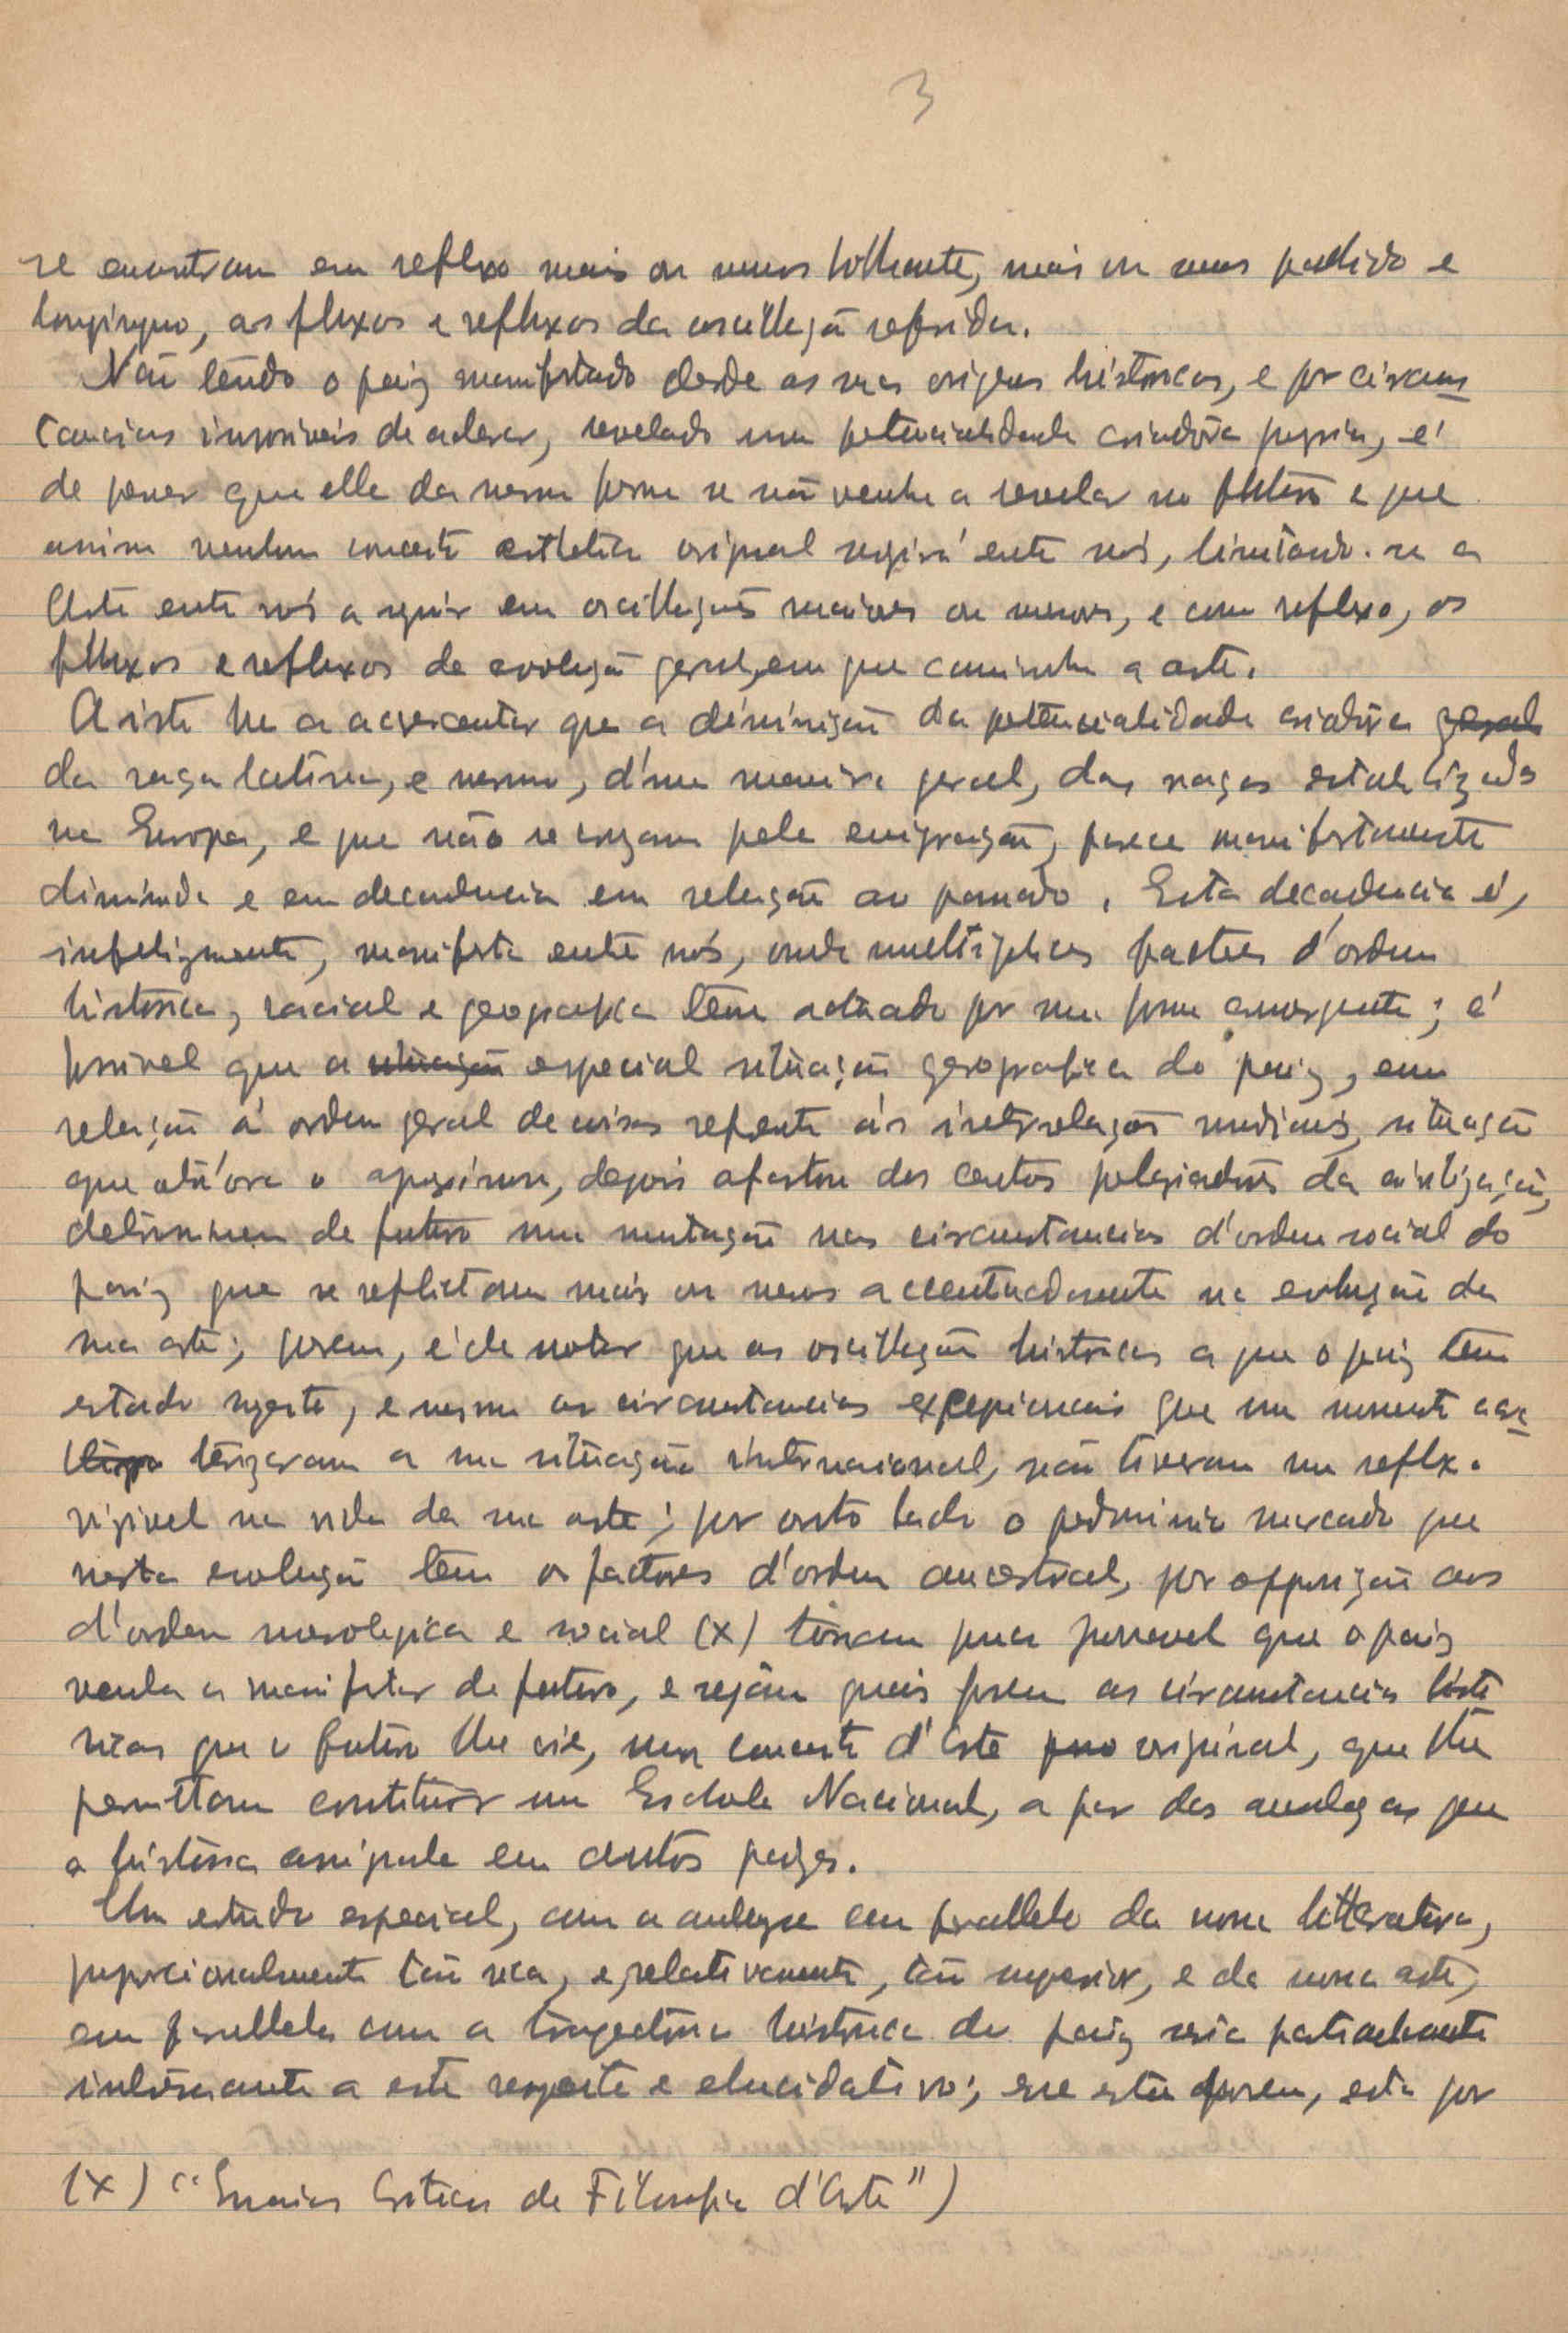 3
se encontram em reflexo mais ou menos brilhante, mais ou menos pallido e
longinquo, os fluxos e refluxos da oscillação referida.
Não tendo o paiz manifestado desde as suas origens historicas, e por circuns
tancias de , revelado uma potencialidade criadôra propria, é
de prever que ella da mesma forma se não venha a revelar no futuro e que
assim nenhum conceito esthetico original surgirá entre nós, limitando-se a
Arte entre nós a seguir em oscillações maiores ou menores, e como reflexo, os
fluxos e refluxos da evolução geral, em que caminha a arte.
A isto ha a acrescentar que a diminuição da potencialidade criadôra geral
da raça latina, e mesmo, d'uma maneira geral, das raças estabilizadas
na Europa, e que não se cruzam pela emigração, parece manifestamente
diminuida e em decadencia em relação ao passado. Esta decadencia é,
infelizmente, manifesta entre nós, onde multiplices factores d'ordem
historica, racial e geografica têm actuado por uma forma convergente; é
possivel que a situação especial situação geografica do paiz, em
relação á ordem geral de coisas referente ás interrelações mundiaes, situação
que ora o aproximou, depois afastou dos centos da civilização,
determinem de futuro uma mutação nas circunstancias d'ordem social do
paiz que se reflictam mais ou menos accentuadamente na evolução da
sua arte; porem, é de notar que as oscillações historicas a que o paiz tem
estado sujeito, e mesmo as circunstancias excepcionais que num momento carac
terizaram a sua situação internacional, não tiveram um reflexo
visivel na vida da sua arte; por outro lado o predominio marcado que
nesta evolução têm os factores d'ordem ancestral, por opposição aos
d'ordem mesologica e social (x) tornam pouco provavel que o paiz
venha a manifestar de futuro, e sejam quais forem as circunstancias histo
ricas que o futuro lhe crie, um conceito d'Arte original, que lhe
permittam constituir uma Eschola Nacional, a par das analogas que
a historia assignala em outros paizes.
Um estudo especial, com a analyse em parallelo da nossa litteratura,
proporcionalmente tão rica, e, relativamente, tão superior, e da nossa arte,
em parallelo com a trajectoria historica do paiz seria particularmente
interessante a este respeito e elucidativo; esse estudo porem, está por
(x) ("Ensaios Criticos de Filosofia d'Arte")